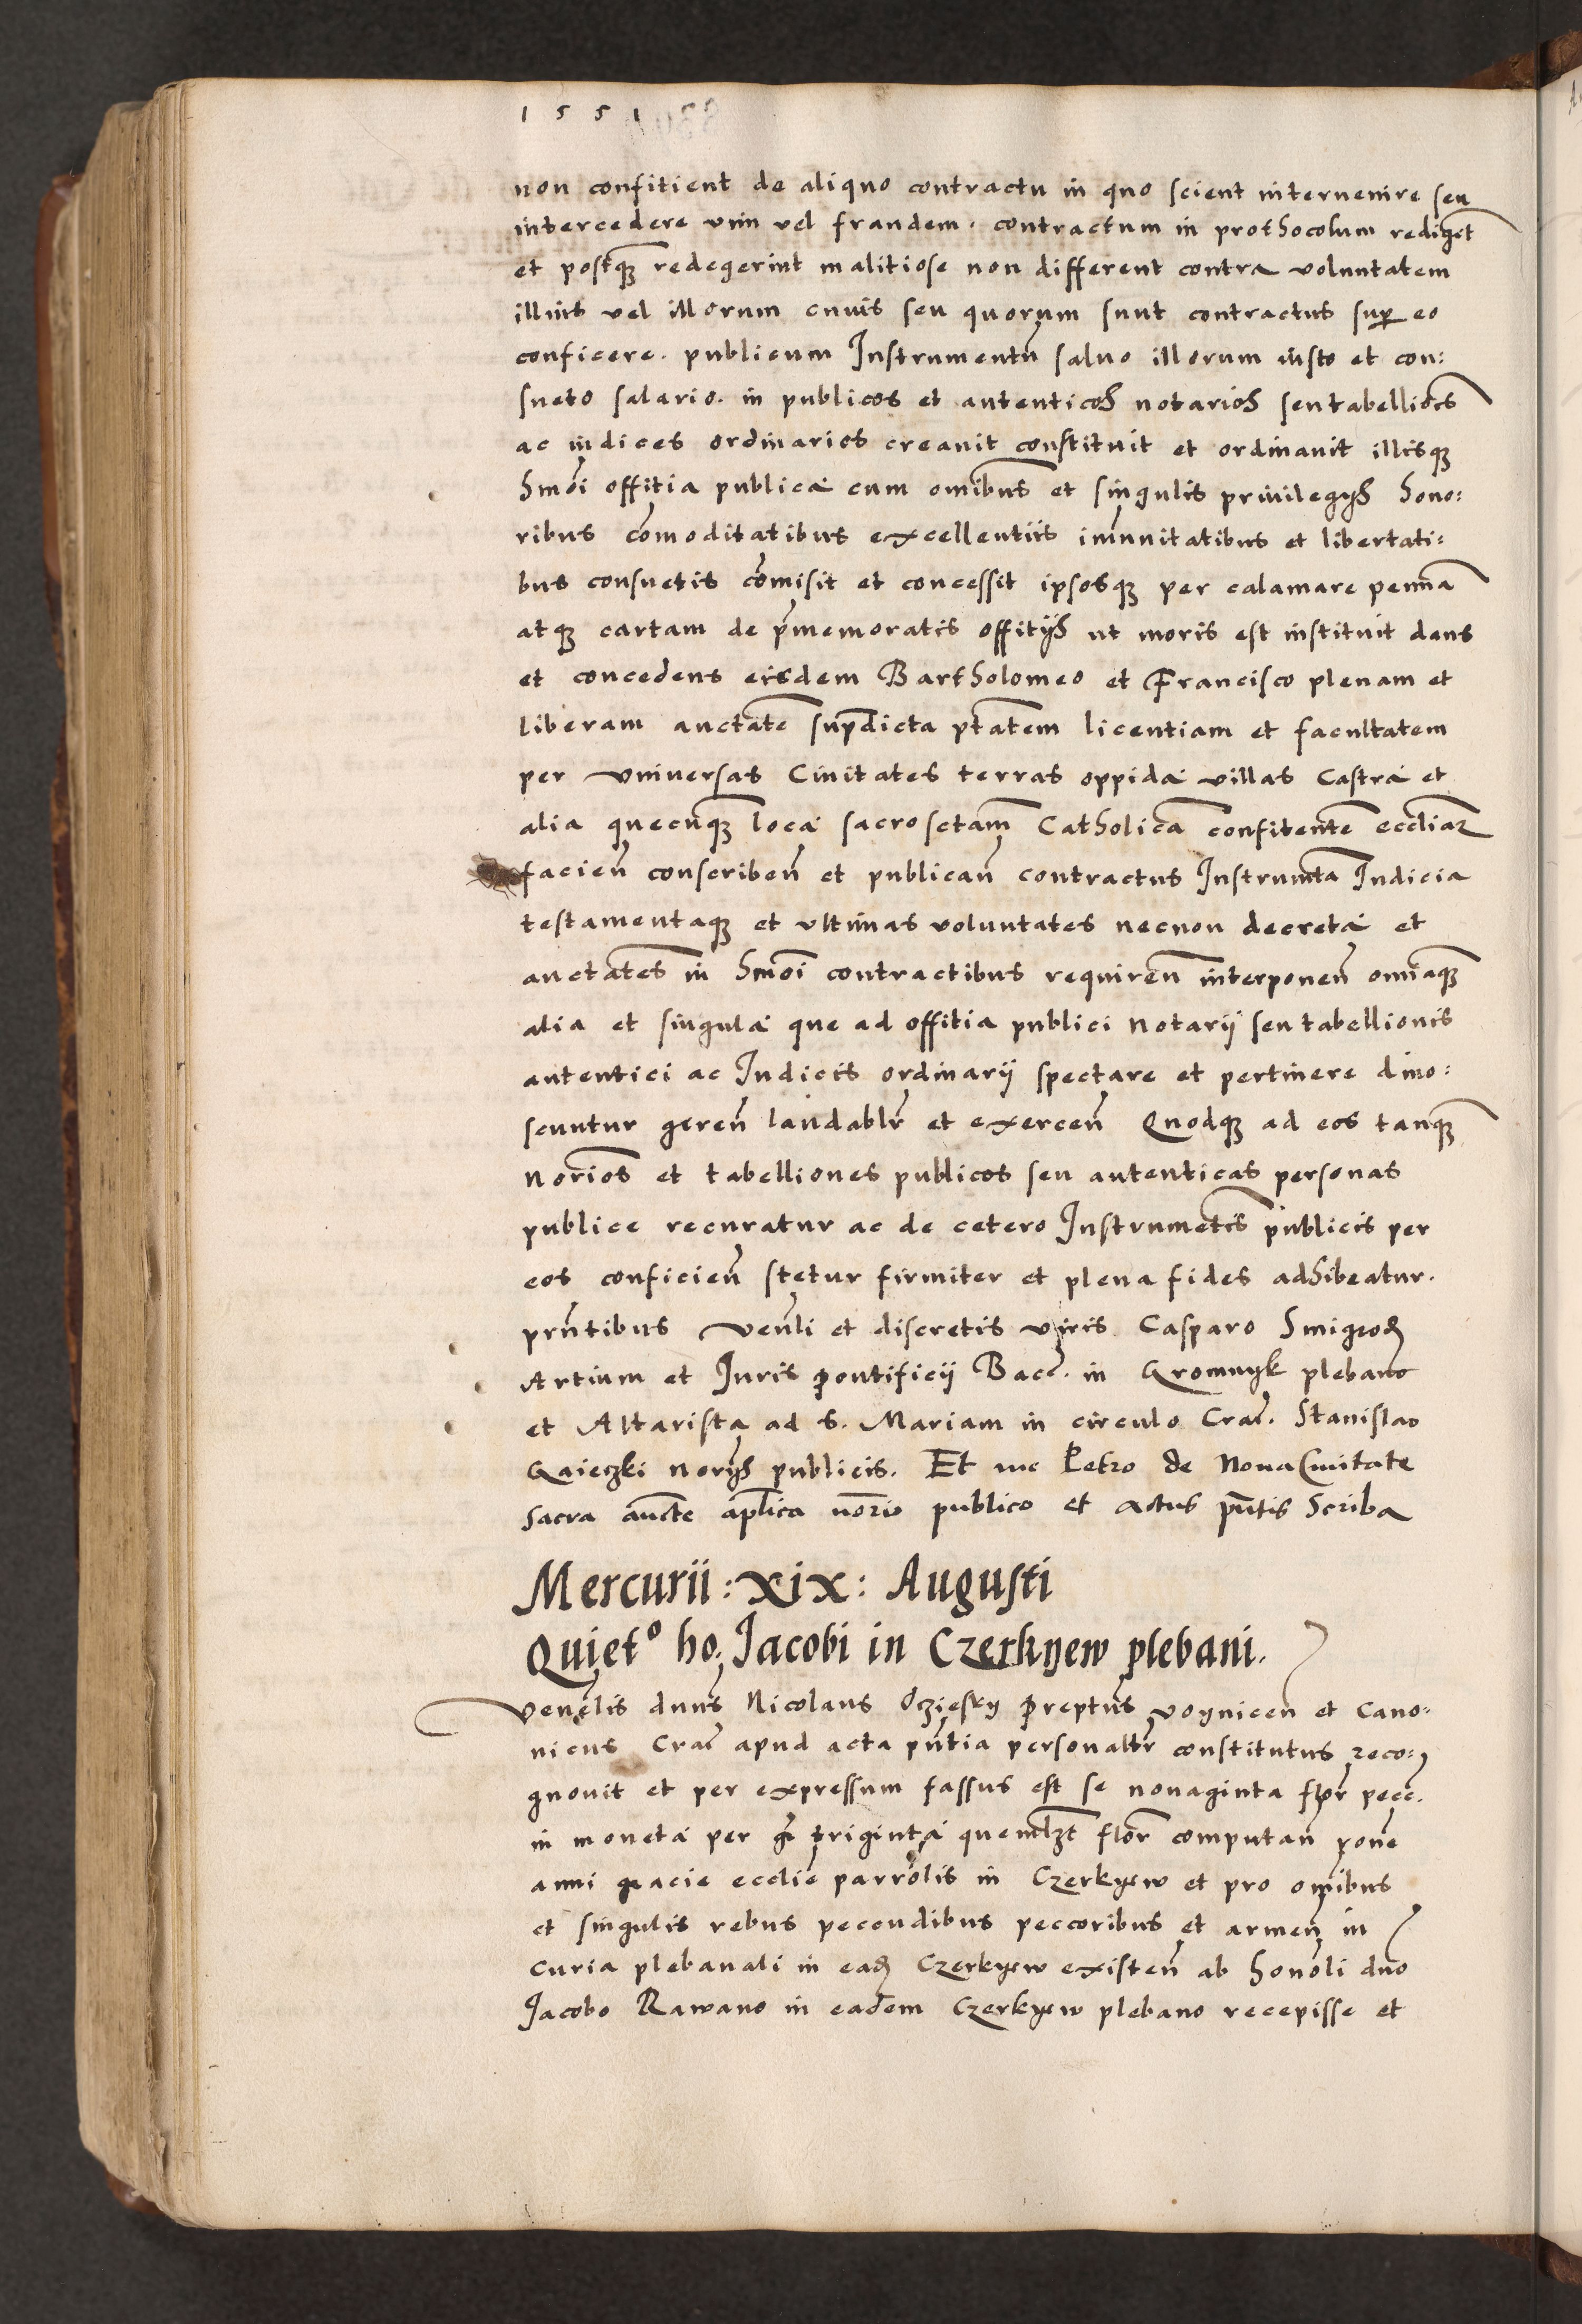 1551
non confitient de aliquo contractu in quo scient intervenire seu
intercedere vim vel fraudem. contractum in prothocolum rediget
et postq̃ redegerint malitiose non different contra voluntatem
illius vel illorum cuius seu quorum sunt contractus sup eo
conficere. publicum Instrumentũ salvo illorum iusto et con:
sueto salario. in publicos et autenticos notarios seu tabellioẽs
ac iudices ordinarios creavit constituit et ordinavit illisq̃
hmõi offitia publica cum omĩbus et singulis privilegijs hono:
ribus cõmoditatibus excellentiis imũnitatibus et libertati:
bus consuetis cõmisit et concessit ipsosq̃ per calamare pennã
atq̃ cartam de p̃memoratis offitijs ut moris est instituit dans
et concedens eisdem Bartholomeo et Francisco plenam et
liberam auctãte sup̃dicta ptãtem licentiam et facultatem
per universas Civitates terras oppida villas Castra et
alia quecũq̃ loca sacrosctam̃ Catholicã confitentẽ eccliaz
facieñ conscribeñ et publicañ contractus Instrumẽta Iudicia
testamentaq̃ et ultimas voluntates necnon decreta et
auctãtes in hmõi contractibus requireñ interponeñ omñiaq̃
alia et singula que ad offitia publici notarij seu tabellionis
autentici ac Iudicis ordinarij spectare et pertinere dino:
scuntur gereñ laudablr̃ et exerceñ Quodq̃ ad eos tanq̃
norios̃ et tabelliones publicos seu autenticas personas
publice recuratur ac de cetero Instrumẽtis publicis per
eos conficieñ stetur firmiter et plena fides adhibeatur.
prñtibus veñli et discretis viris Casparo Smigrod
Artium et Iuris pontificij Bacc̃. in Gromnyk plebano
et Altarista ad S. Mariam in circulo Crac̃. Stanislao
Gaieczki norijs publicis. Et me Petro de Nova Civitate
sacra auctẽ aplica nõrio publico et actus pñtis Scriba
Mercurii : xix : Augusti
Quietº ho. Jacobi in Czerkyew plebani.
Veneł̃is dnũs Nicolaus Oczieski preptũs voyniceñ et Cano:
nicus Crac̃ apud acta pñtia personaltr̃ constitutus reco:
gnovit et per expressum fassus est se nonaginta flor̃ pecc̃.
in moneta per gr̃ triginta quemlzt flor̃ computañ rone
anni gracie ecclie parrolis in Czerkyew et pro omĩbus
et singulis rebus pecudibus peccoribus et armeñ in
curia plebanali in ead Czerkyew existeñ ab honoli dno
Jacobo Rawano in eadem Czerkyew plebano recepisse et